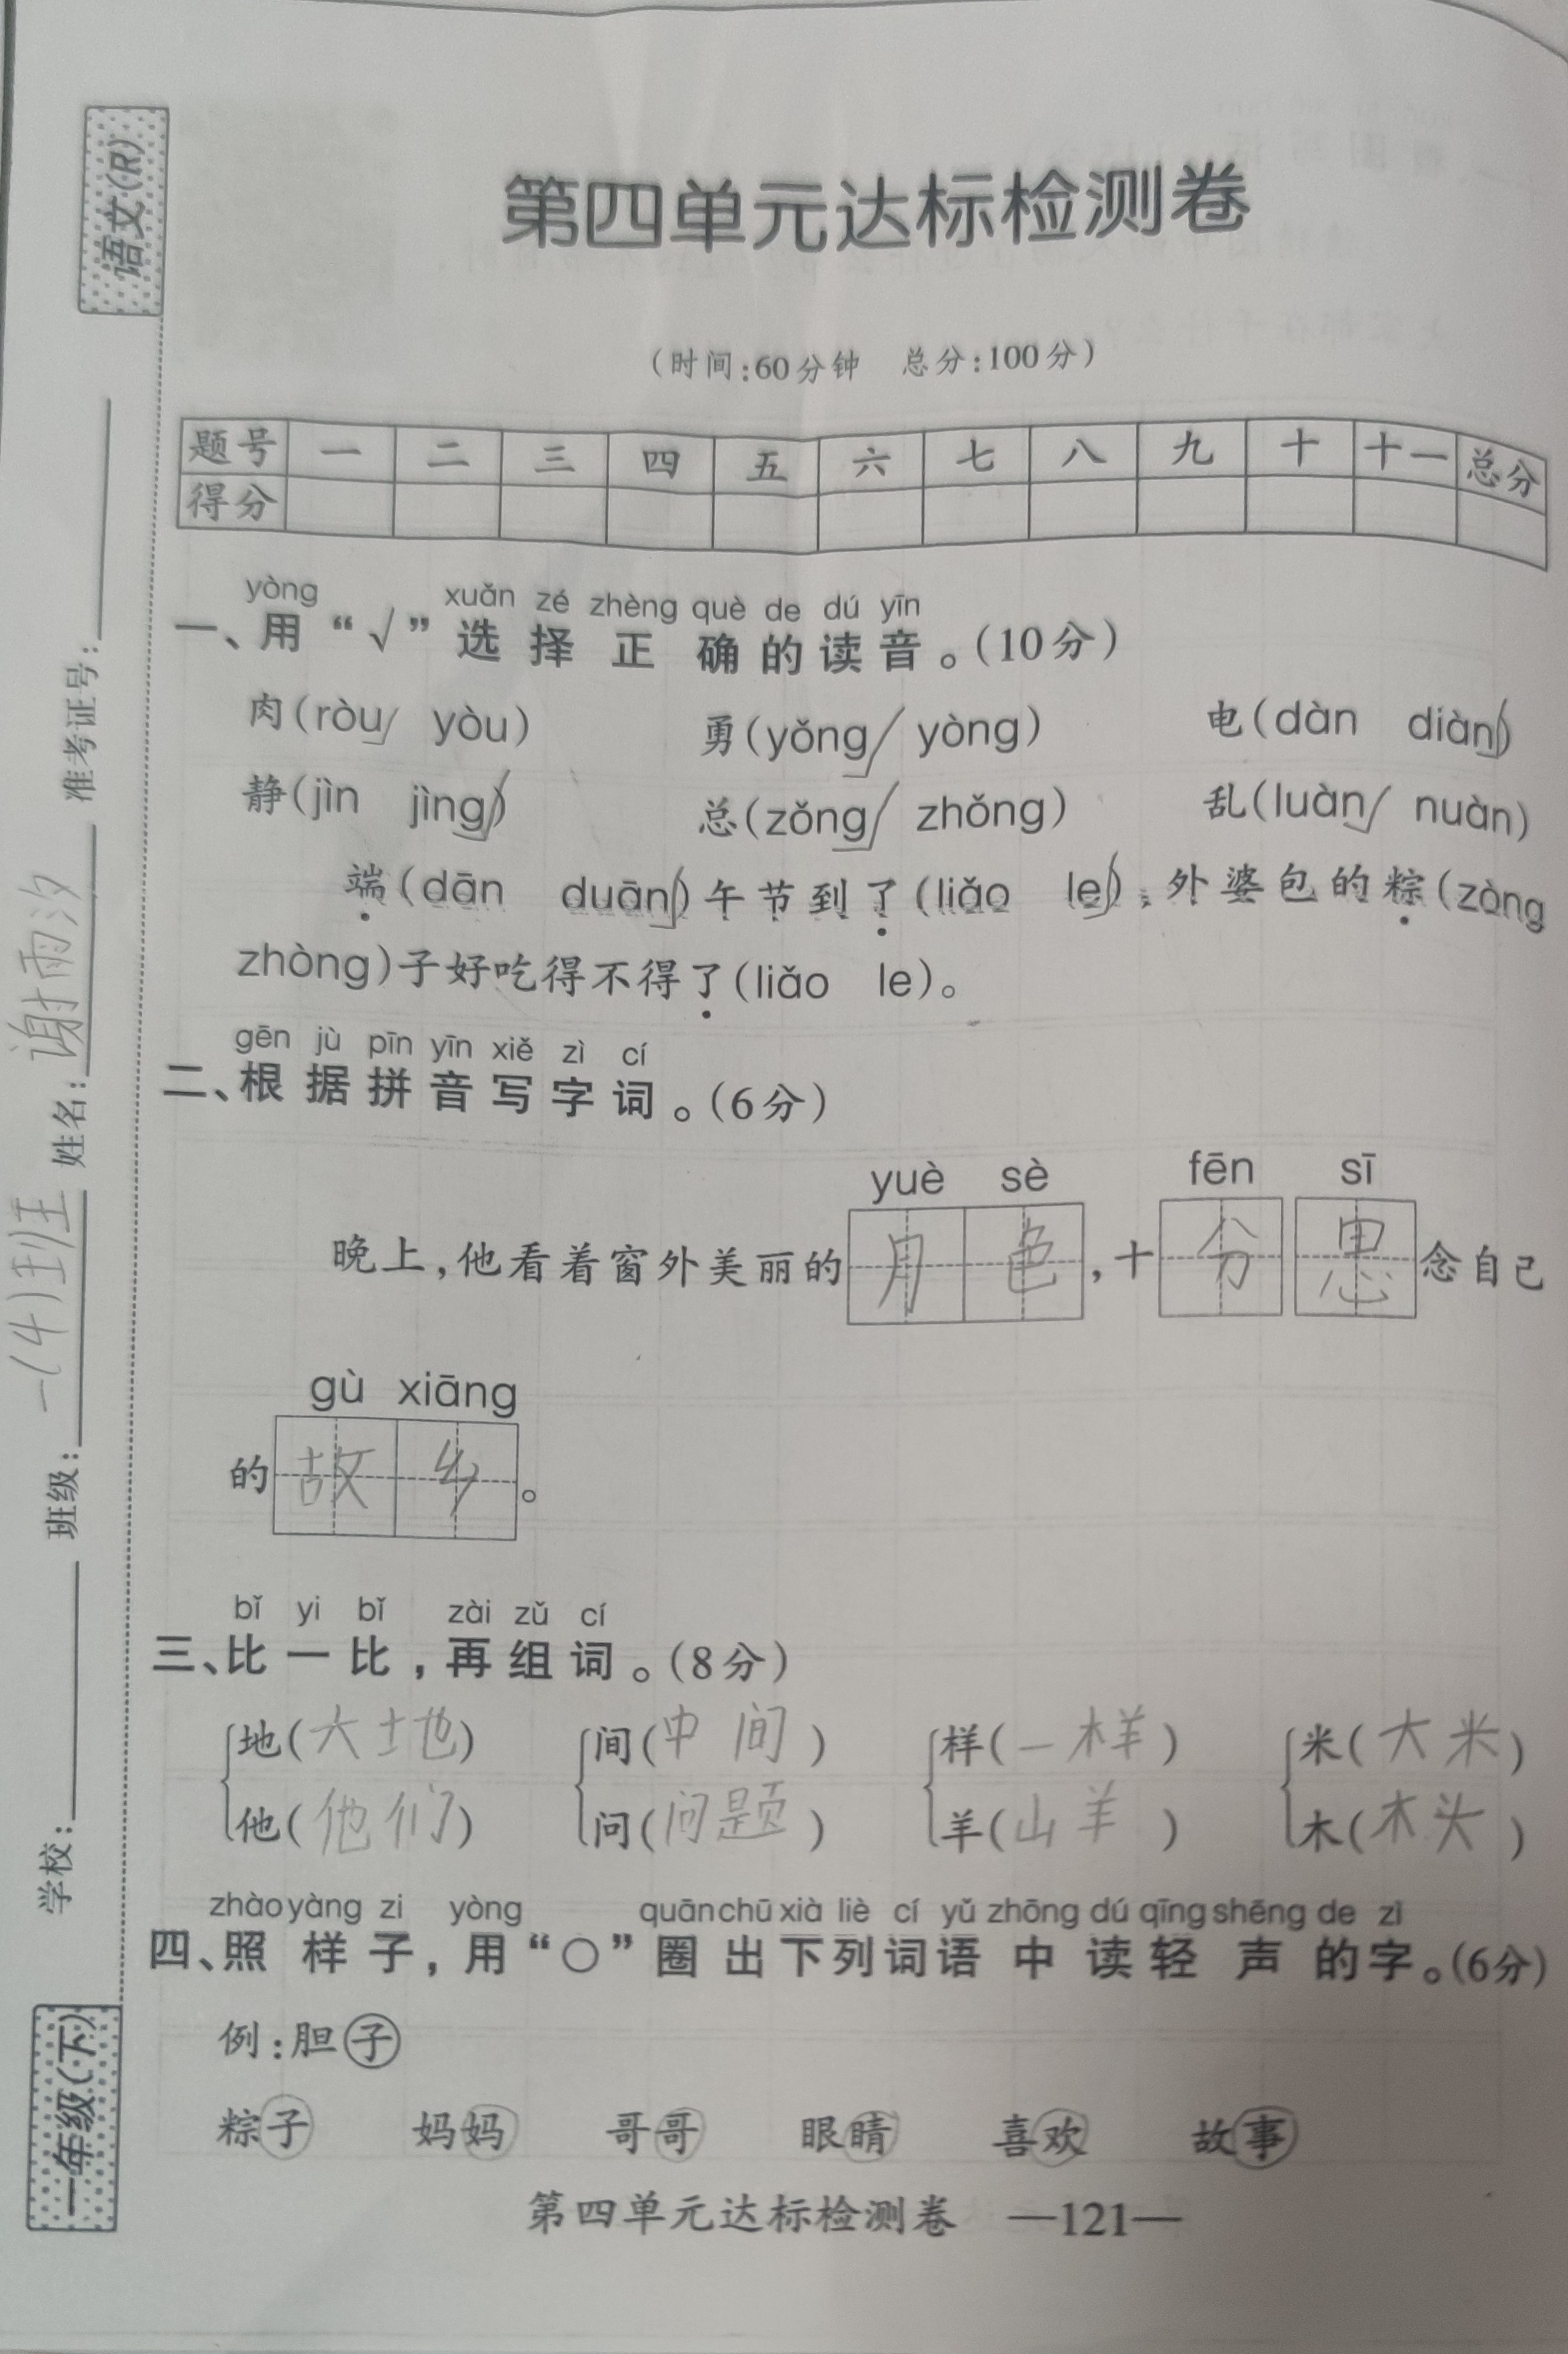 语文(R)
第四单元达标检测卷
(时间:60分钟 总分:100分)
题号 一 二 三 四 五 六 七 八 九 十 十一 总分
得分
yòng xuǎn zé zhèng què de dú yīn
一、用“√”选择正确的读音。(10分)
肉(ròu√ yòu) 勇(yǒng√ yòng) 电(dàn diàn√)
静(jìn jìng√) 总(zǒng√ zhǒng) 乱(luàn√ nuàn)
端(dān duān√)午节到了(liǎo le√),外婆包的粽(zòng
zhòng)子好吃得不得了(liǎo le)。
gēn jù pīn yīn xiě zì cí
二、根据拼音写字词。(6分)
yuè sè fēn sī
晚上,他看着窗外美丽的月色,十分思念自己
gù xiāng
的故乡。
bǐ yi bǐ zài zǔ cí
三、比一比,再组词。(8分)
地(大地) 间(中间) 样(一样) 米(大米)
他(他们) 问(问题) 羊(山羊) 木(木头)
zhào yàng zi yòng quān chū xià liè cí yǔ zhōng dú qīng shēng de zì
四、照样子,用“○”圈出下列词语中读轻声的字。(6分)
例:胆子
粽子 妈妈 哥哥 眼睛 喜欢 故事
第四单元达标检测卷 —121—
准考证号:
姓名:谢雨汐
班级:一(4)班
学校:
一年级(下)